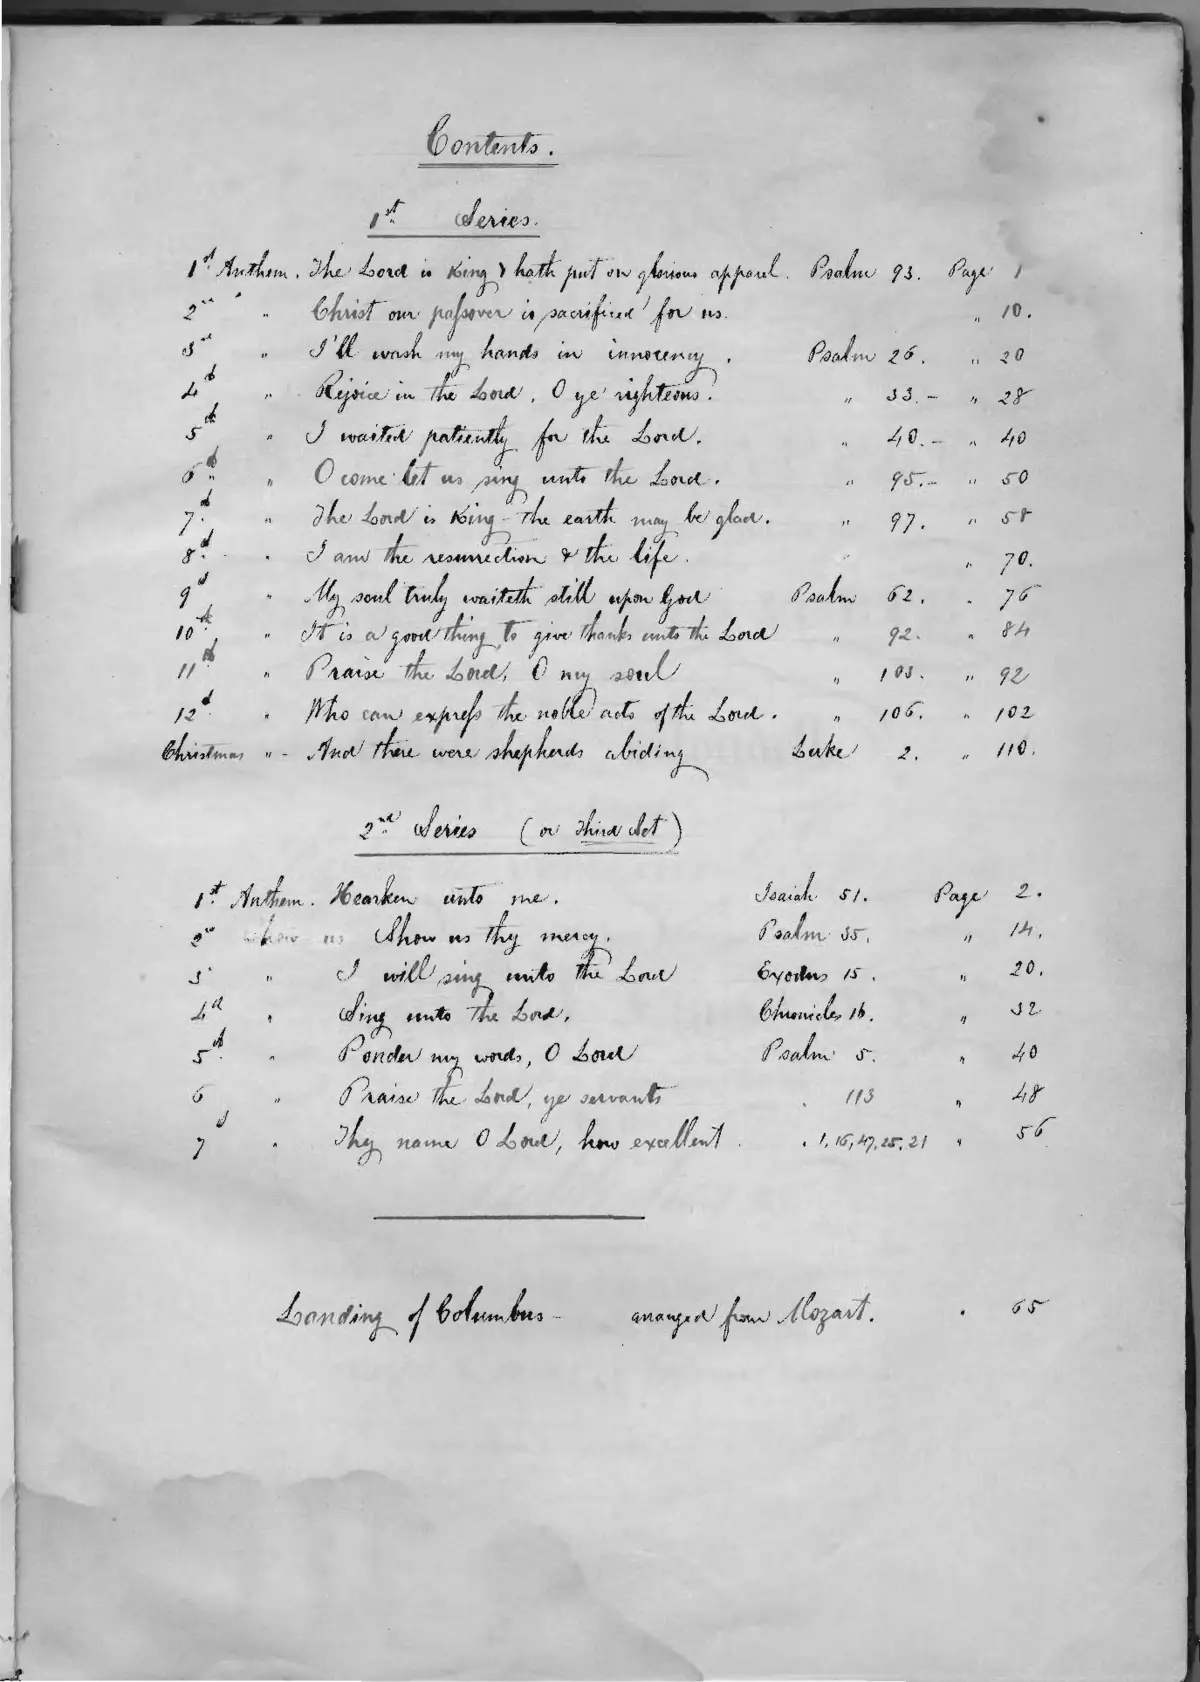 Contents.
1st Series.
1st Anthem. The Lord is King & hath put on glorious apparel. Psalm 93. Page 1
2nd " Christ our passover is sacrificed for us. " 10.
3rd " I'll wash my hands in innocency. Psalm 26. " 20
4th " Rejoice in the Lord, O ye righteous. " 33.- " 28
5th " I waited patiently for the Lord. " 40.- " 40
6th " O come let us sing unto the Lord. " 95.- " 50
7th " The Lord is King - the earth may be glad. " 97. " 58
8th " I am the resurrection & the life. " 70.
9th " My soul truly waiteth still upon God Psalm 62. " 76
10th " It is a good thing to give thanks unto the Lord " 92. " 84
11th " Praise the Lord, O my soul " 103. " 92
12th " Who can express the noble acts of the Lord. " 106. " 102
Christmas " - And there were shepherds abiding Luke 2. " 110.
2nd Series (or Third Set)
1st Anthem. Hearken unto me. Isaiah 51. Page 2.
2nd Show us Show us thy mercy. Psalm 35. " 14.
3d " I will sing unto the Lord Exodus 15. " 20.
4th " Sing unto the Lord. Chronicles 16. " 32
5th " Ponder my words, O Lord Psalm 5. " 40
6 " Praise the Lord, ye servants " 113 " 48
7th " Thy name O Lord, how excellent " 1, 16, 47, 25, 21 " 56
Landing of Columbus - arranged from Mozart. " 65